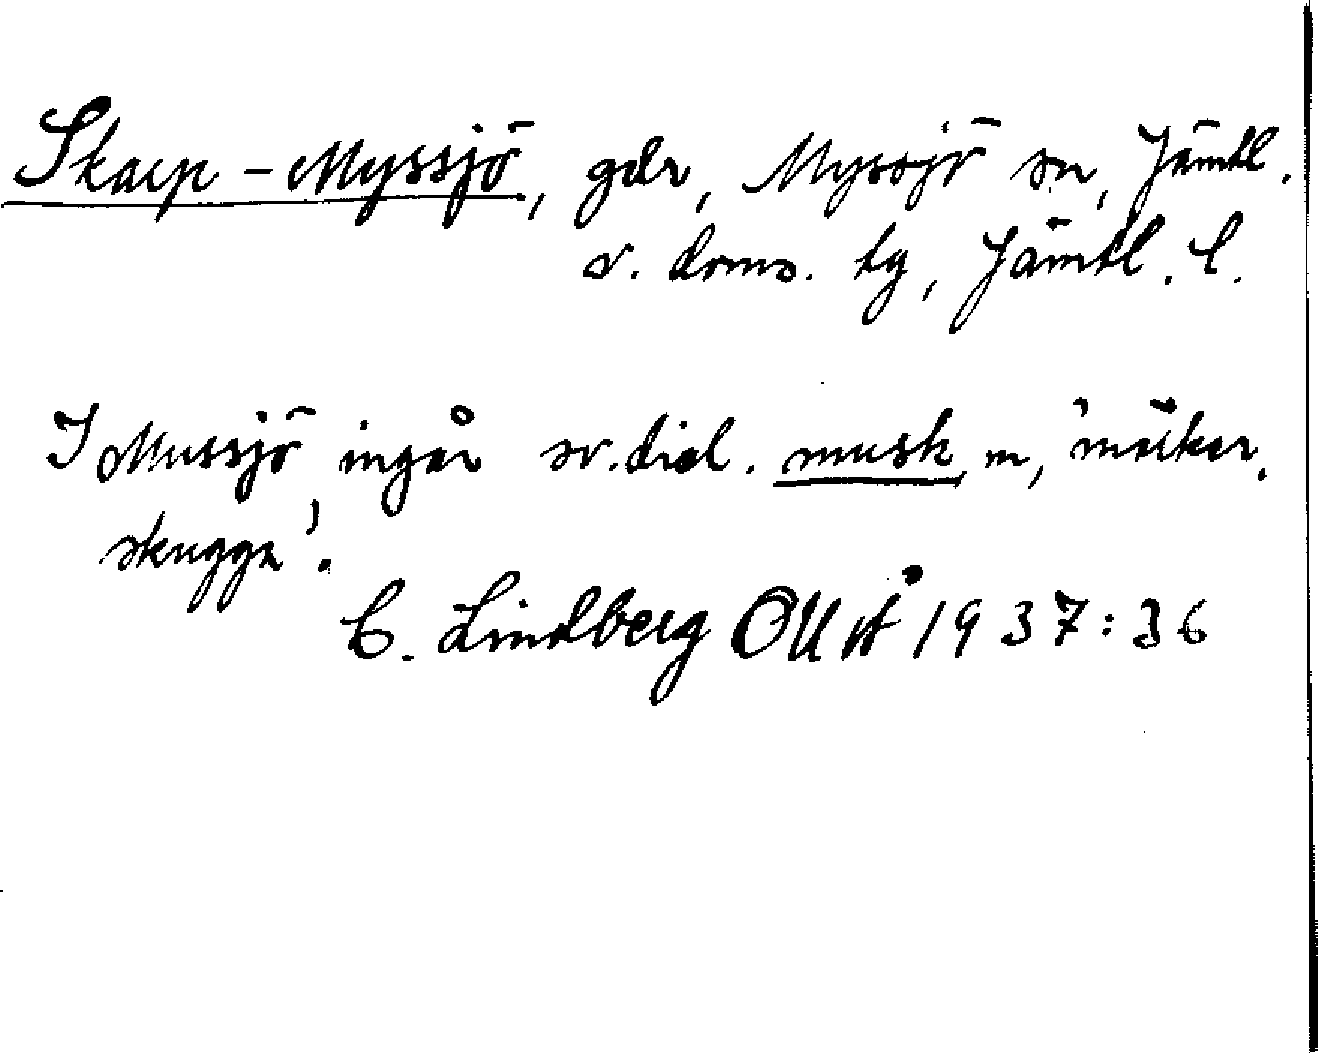 Skarp-Myssjö, gdr, Myssjö sn, Jämtl.
s. doms. tg, Jämtl. l.
I Mussjö ingår sv. dial. musk m, 'mörker,
skugga'.
C. Lindberg OUÅ 1937:36